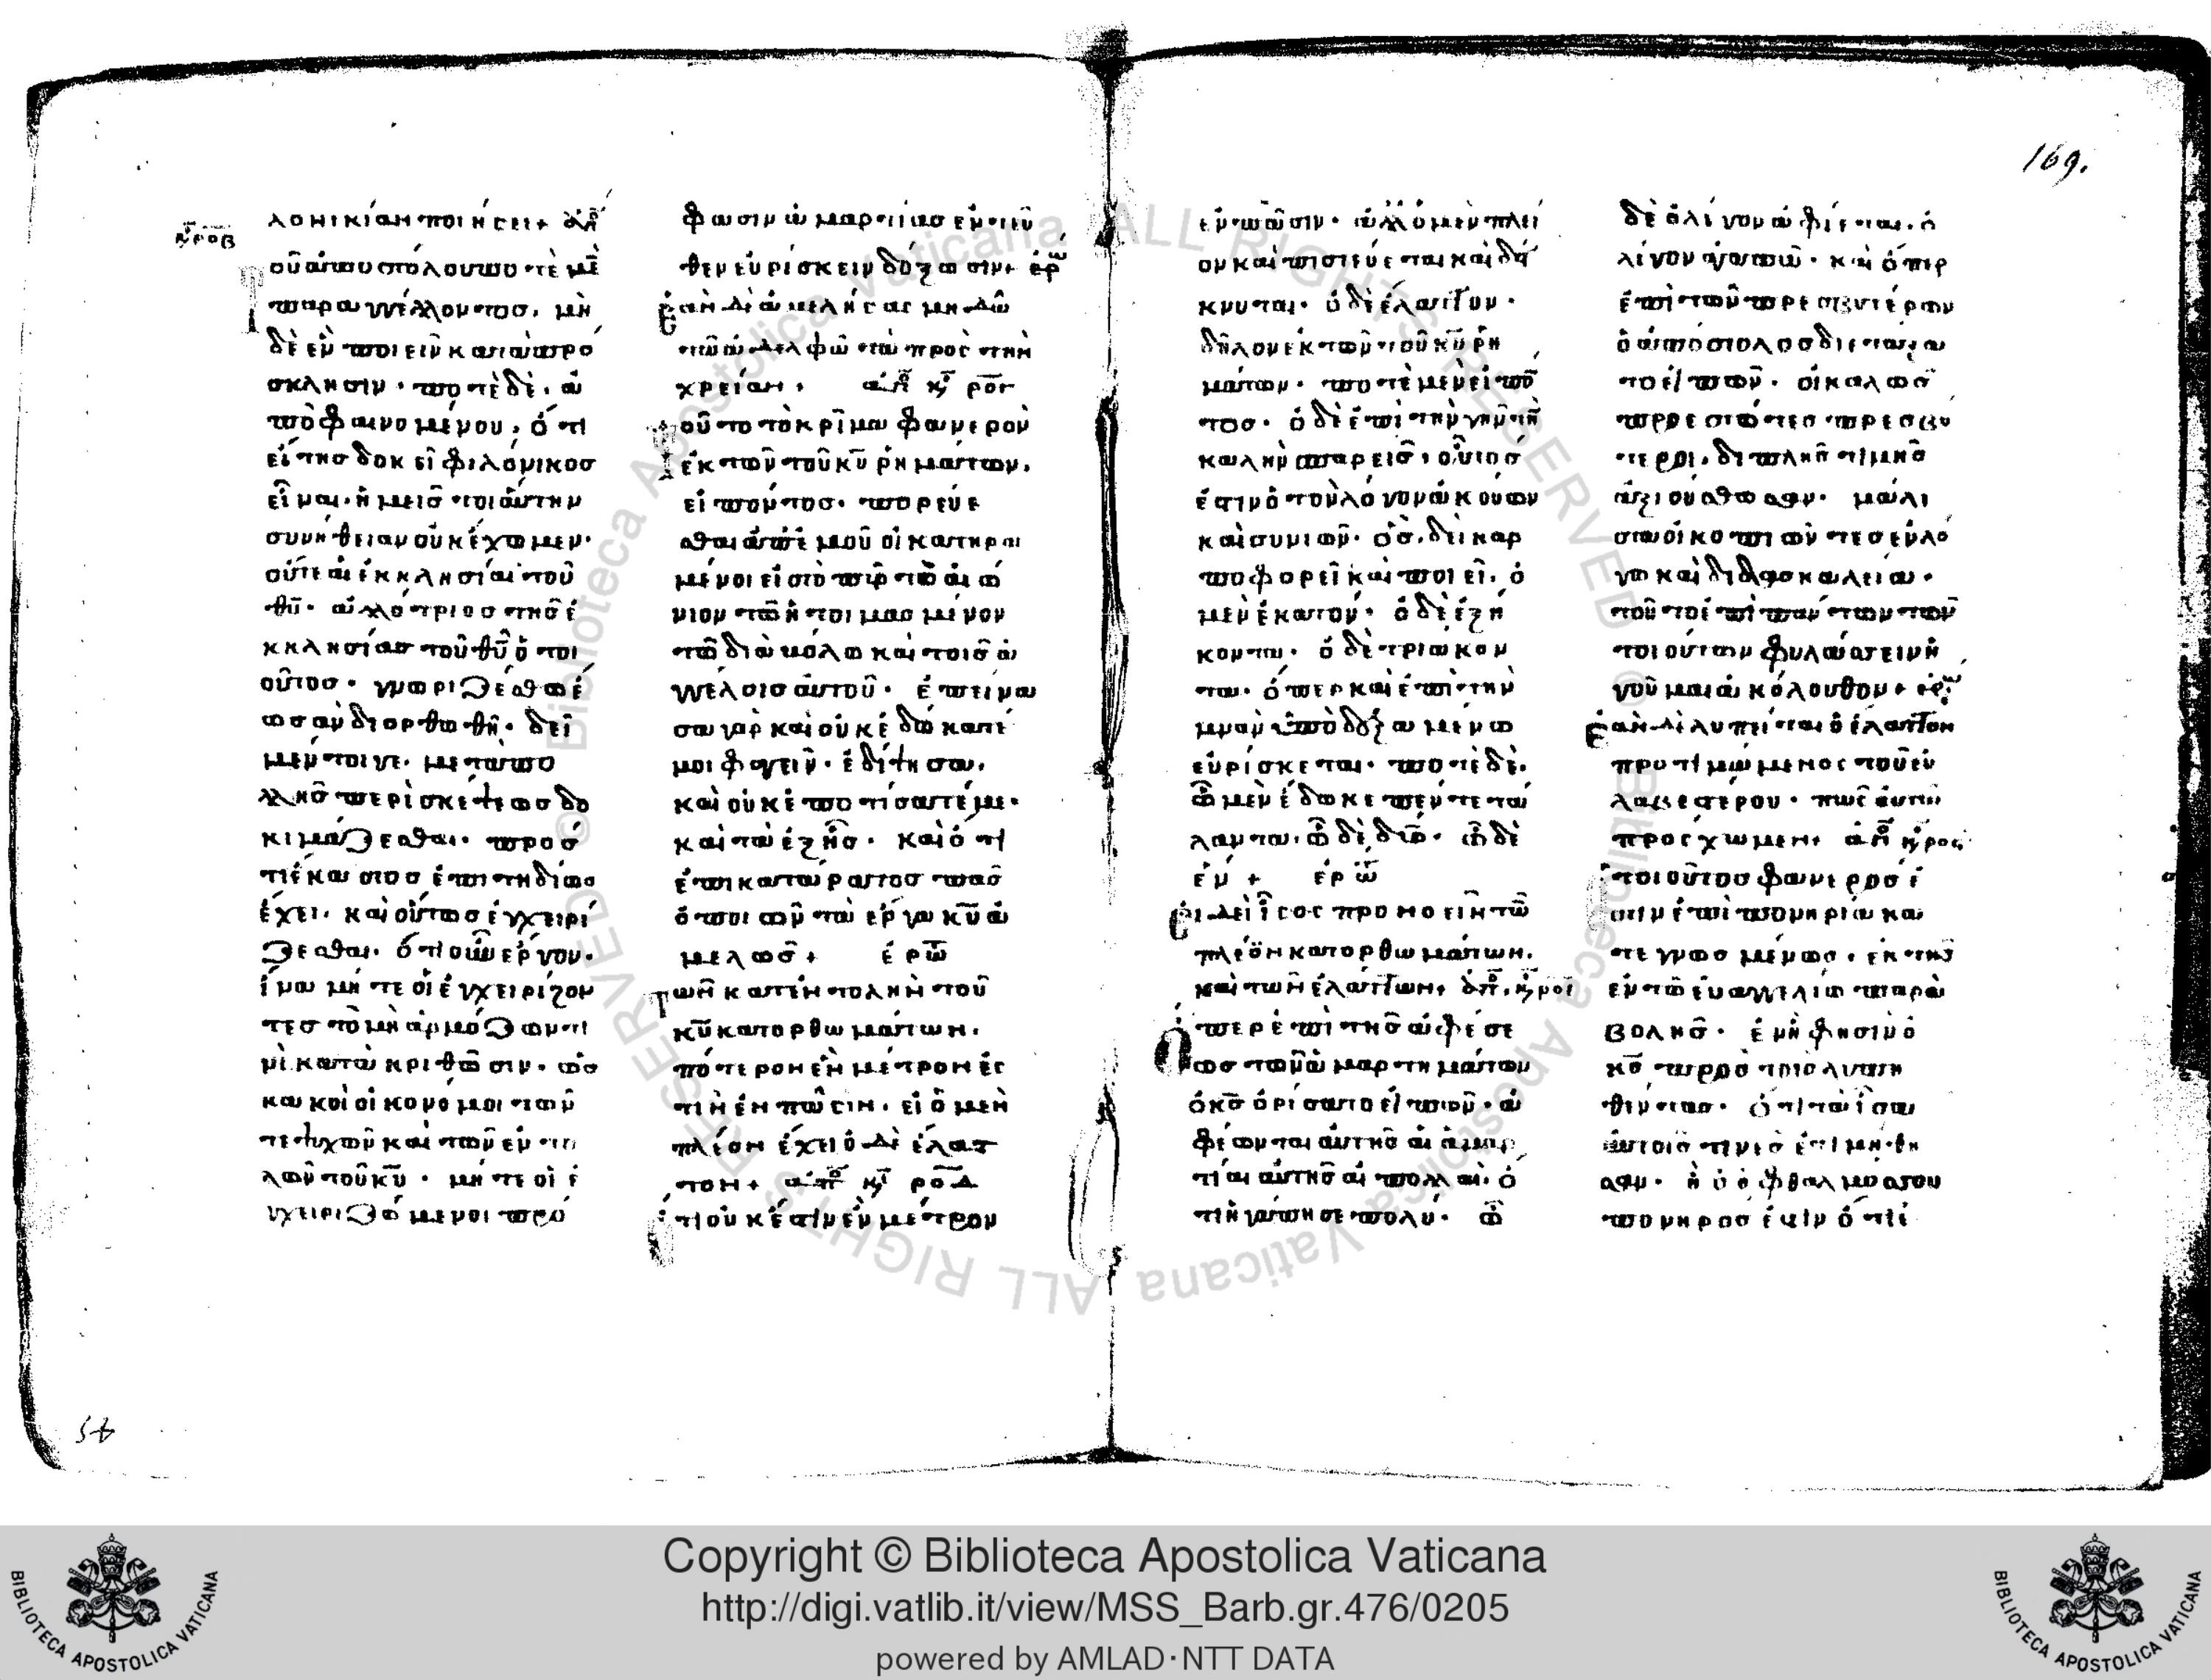 169.
λονικίαν ποιήσει + ἀπ
κ ροβ
οῦ ἀποστόλου ποτὲ μὲ
παραγγέλλοντος, μη
δὲν ποιεῖν κατὰ πρό
σκλησιν · ποτὲ δὲ, ἀ
ποφαινομένου, ὅτι
εἴ τις δοκεῖ φιλόνικος
εἶναι, ἡμεῖς τοιαύτην
συνήθειαν οὐκ ἔχομεν ·
οὔτε αἱ ἐκκλησίαι τοῦ
θῦ · ἀλλότριος τῆς ἐ
κκλησίας τοῦ θῦ ὁ τοι
οῦτος · γνωριζέσθω ἕ
ως ἂν διορθωθῇ · δεῖ
μέντοιγε μετὰ πο
λλῆς περισκέψεως δο
κιμάζεσθαι · πρὸς
τί ἕκαστος ἐπιτηδείως
ἔχει, καὶ οὕτως ἐγχειρί
ζεσθαι ὁτιοῦν ἔργον ·
ἵνα μήτε οἱ ἐγχειρίζον
τες τὸ μὴ ἁρμόζον τι
νὶ κατακριθῶσιν · ὡς
κακοὶ οἰκονόμοι τῶν
τε ψυχῶν καὶ τῶν ἐντο
λῶν τοῦ κῦ · μήτε οἱ ἐ
γχειριζόμενοι πρό
φασιν ἁμαρτίας ἐντεῦ
θεν εὑρίσκειν δόξωσιν + ἐρ
ἐὰν δὲ ἀμελήσας μὴ δῶ
τῶ ἀδελφῶ τὰ πρὸς τὴν
χρείαν + ἀπ κ ρογ
οῦτο τὸ κρῖμα φανερὸν
ἐκ τῶν τοῦ κῦ ῥημάτων,
εἰπόντος · πορεύε
σθαι ἀπ' ἐμοῦ οἱ κατηρα
μένοι εἰς τὸ πῦρ τὸ αἰώ
νιον τῶ ἡτοιμασμένον
τῶ διαβόλω καὶ τοῖς ἀ
γγέλοις αὐτοῦ · ἐπείνα
σα γὰρ καὶ οὐκ ἐδώκατέ
μοι φαγεῖν · ἐδίψησα,
καὶ οὐκ ἐποτίσατέ με ·
καὶ τὰ ἑξῆς · καὶ ὅτι
ἐπικατάρατος πᾶς
ὁ ποιῶν τὰ ἔργα κῦ ἀ
μελῶς + ἐρω
τῶν κατ' ἐντολὴν τοῦ
κῦ κατορθωμάτων,
πότερον ἓν μέτρον ἐς
τὶν ἐν πᾶσιν, εἰ ὁ μὲν
πλέον ἔχει ὁ δὲ ἔλατ
τον + ἀπ κ ροδ
ὅτι οὐκ ἔστιν ἓν μέτρον
ἐν πᾶσιν · ἀλλ' ὁ μὲν πλεί
ον καὶ πιστεύεται καὶ δεί
κνυται · ὁ δὲ ἔλαττον ·
δῆλον ἐκ τῶν τοῦ κῦ ῥη
μάτων · ποτὲ μὲν εἰπόν
τος · ὁ δὲ ἐπὶ τὴν γῆν τὴν
καλὴν σπαρείς, οὗτός
ἐστιν ὁ τὸν λόγον ἀκούων
καὶ συνιῶν · ὃς δὴ καρ
ποφορεῖ καὶ ποιεῖ, ὁ
μὲν ἑκατόν · ὁ δὲ ἑξή
κοντα · ὁ δὲ τριάκον
τα · ὅπερ καὶ ἐπὶ τὴν
μνᾶν ὑποδεξαμένω
εὑρίσκεται · ποτὲ δὲ,
ᾧ μὲν ἔδωκε πέντε τά
λαντα, ᾧ δὲ δύο · ᾧ δὲ
ἕν + ἐρω
εἰ δεῖ ἴσος προνοεῖν τῶ
πλέον κατορθωμάτων,
καὶ τῶν ἐλαττων + ἀπ κ ροε
ὅπερ ἐπὶ τῆς ἀφέσε
ως τῶν ἁμαρτημάτων
ὁ κς ὁρίσατο εἰπών · ἀ
φέωνται αὐτῆς αἱ ἁμαρ
τίαι αὐτῆς αἱ πολλαί, ὅ
τι ἠγάπησε πολύ · ᾧ
δὲ ὀλίγον ἀφίεται, ὀ
λίγον ἀγαπᾷ · καὶ ὅπερ
ἐπὶ τῶν πρεσβυτέρων
ὁ ἀπόστολος διετάξα
το εἰπών · οἱ καλῶς
προεστῶτες πρεσβύ
τεροι, διπλῆς τιμῆς
ἀξιούσθωσαν · μάλι
στα οἱ κοπιῶντες ἐν λό
γω καὶ διδασκαλεία ·
τοῦτο ἐπὶ πάντων τῶν
τοιούτων φυλάσσειν ἡ
γοῦμαι ἀκόλουθον + ἐρ
ἐὰν δὲ λυπῆται ὁ ἔλαττον
προτιμώμενος τοῦ εὐ
λαβεστέρου · πῶς αὐτῶ
προσχῶμεν + ἀπ κ ροϛ
ὁ τοιοῦτος φανερός ἐ
στιν ἐπὶ πονηρία κα
τεγνωσμένος · ἐκ τῆς
ἐν τῶ εὐαγγελίω παρα
βολῆς · ἐν ᾗ φησιν ὁ
κς πρὸς τοὺς λυπη
θέντας · ὅτι τὰ ἴσα
αὐτοῖς τινὲς ἐτιμήθη
σαν · ἢ ὁ ὀφθαλμός σου
πονηρός ἐστιν ὅτι ἐ
Copyright © Biblioteca Apostolica Vaticana
http://digi.vatlib.it/view/MSS_Barb.gr.476/0205
powered by AMLAD·NTT DATA
BIBLIOTECA APOSTOLICA VATICANA
BIBLIOTECA APOSTOLICA VATICANA